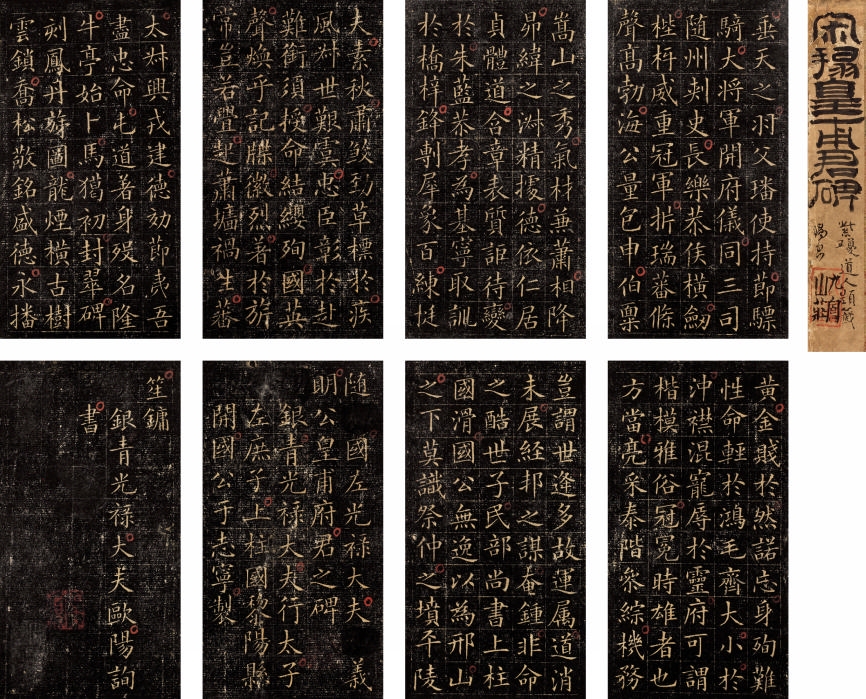 宋搨皇甫君碑
紫瓊道人題籤
垂天之羽父璠使持節驃
騎大將軍開府儀同三司
随州刾史長樂恭侯橫劒
桎梏威重冠軍折瑞蕃條
聲髙勃海公量包申伯稟
嵩山之秀氣材兼蕭相降
昴緯之淋精據德依仁居
貞體道含章表質詎待變
於朱藍恭孝為基寧取訓
於橋梓鋒剸犀象百練挺
夫素秋肅煞勁草標於疾
風叔世艱虞忠臣彰於赴
難銜須授命結纓殉國英
聲煥乎記牒徽烈著於旂
常豈若釁起蕭墻禍生蕃
太叔興戎建德効節夷吾
盡忠命屯道著身殁名隆
牛亭始卜馬獦初封翠碑
刻鳳丹旐圖龍煙橫古樹
雲鎖喬松敬銘盛德永播
黃金賤於然諾忘身殉難
性命輕於鴻毛齊大小於
沖襟混寵辱於靈府可謂
楷模雅俗冠冕時雄者也
方當亮采泰階叅綜機務
豈謂世逢多故運属道消
未展經邦之謀奄鍾非命
之酷世子民部尚書上柱
國滑國公無逸以為邢山
之下莫識祭仲之墳平陵
随 國左光祿大夫 義
明公皇甫府君之碑
銀青光祿大夫行太子
左庶子上柱國黎陽縣
開國公于志寧製
笙鏞
銀青光祿大夫歐陽詢
書